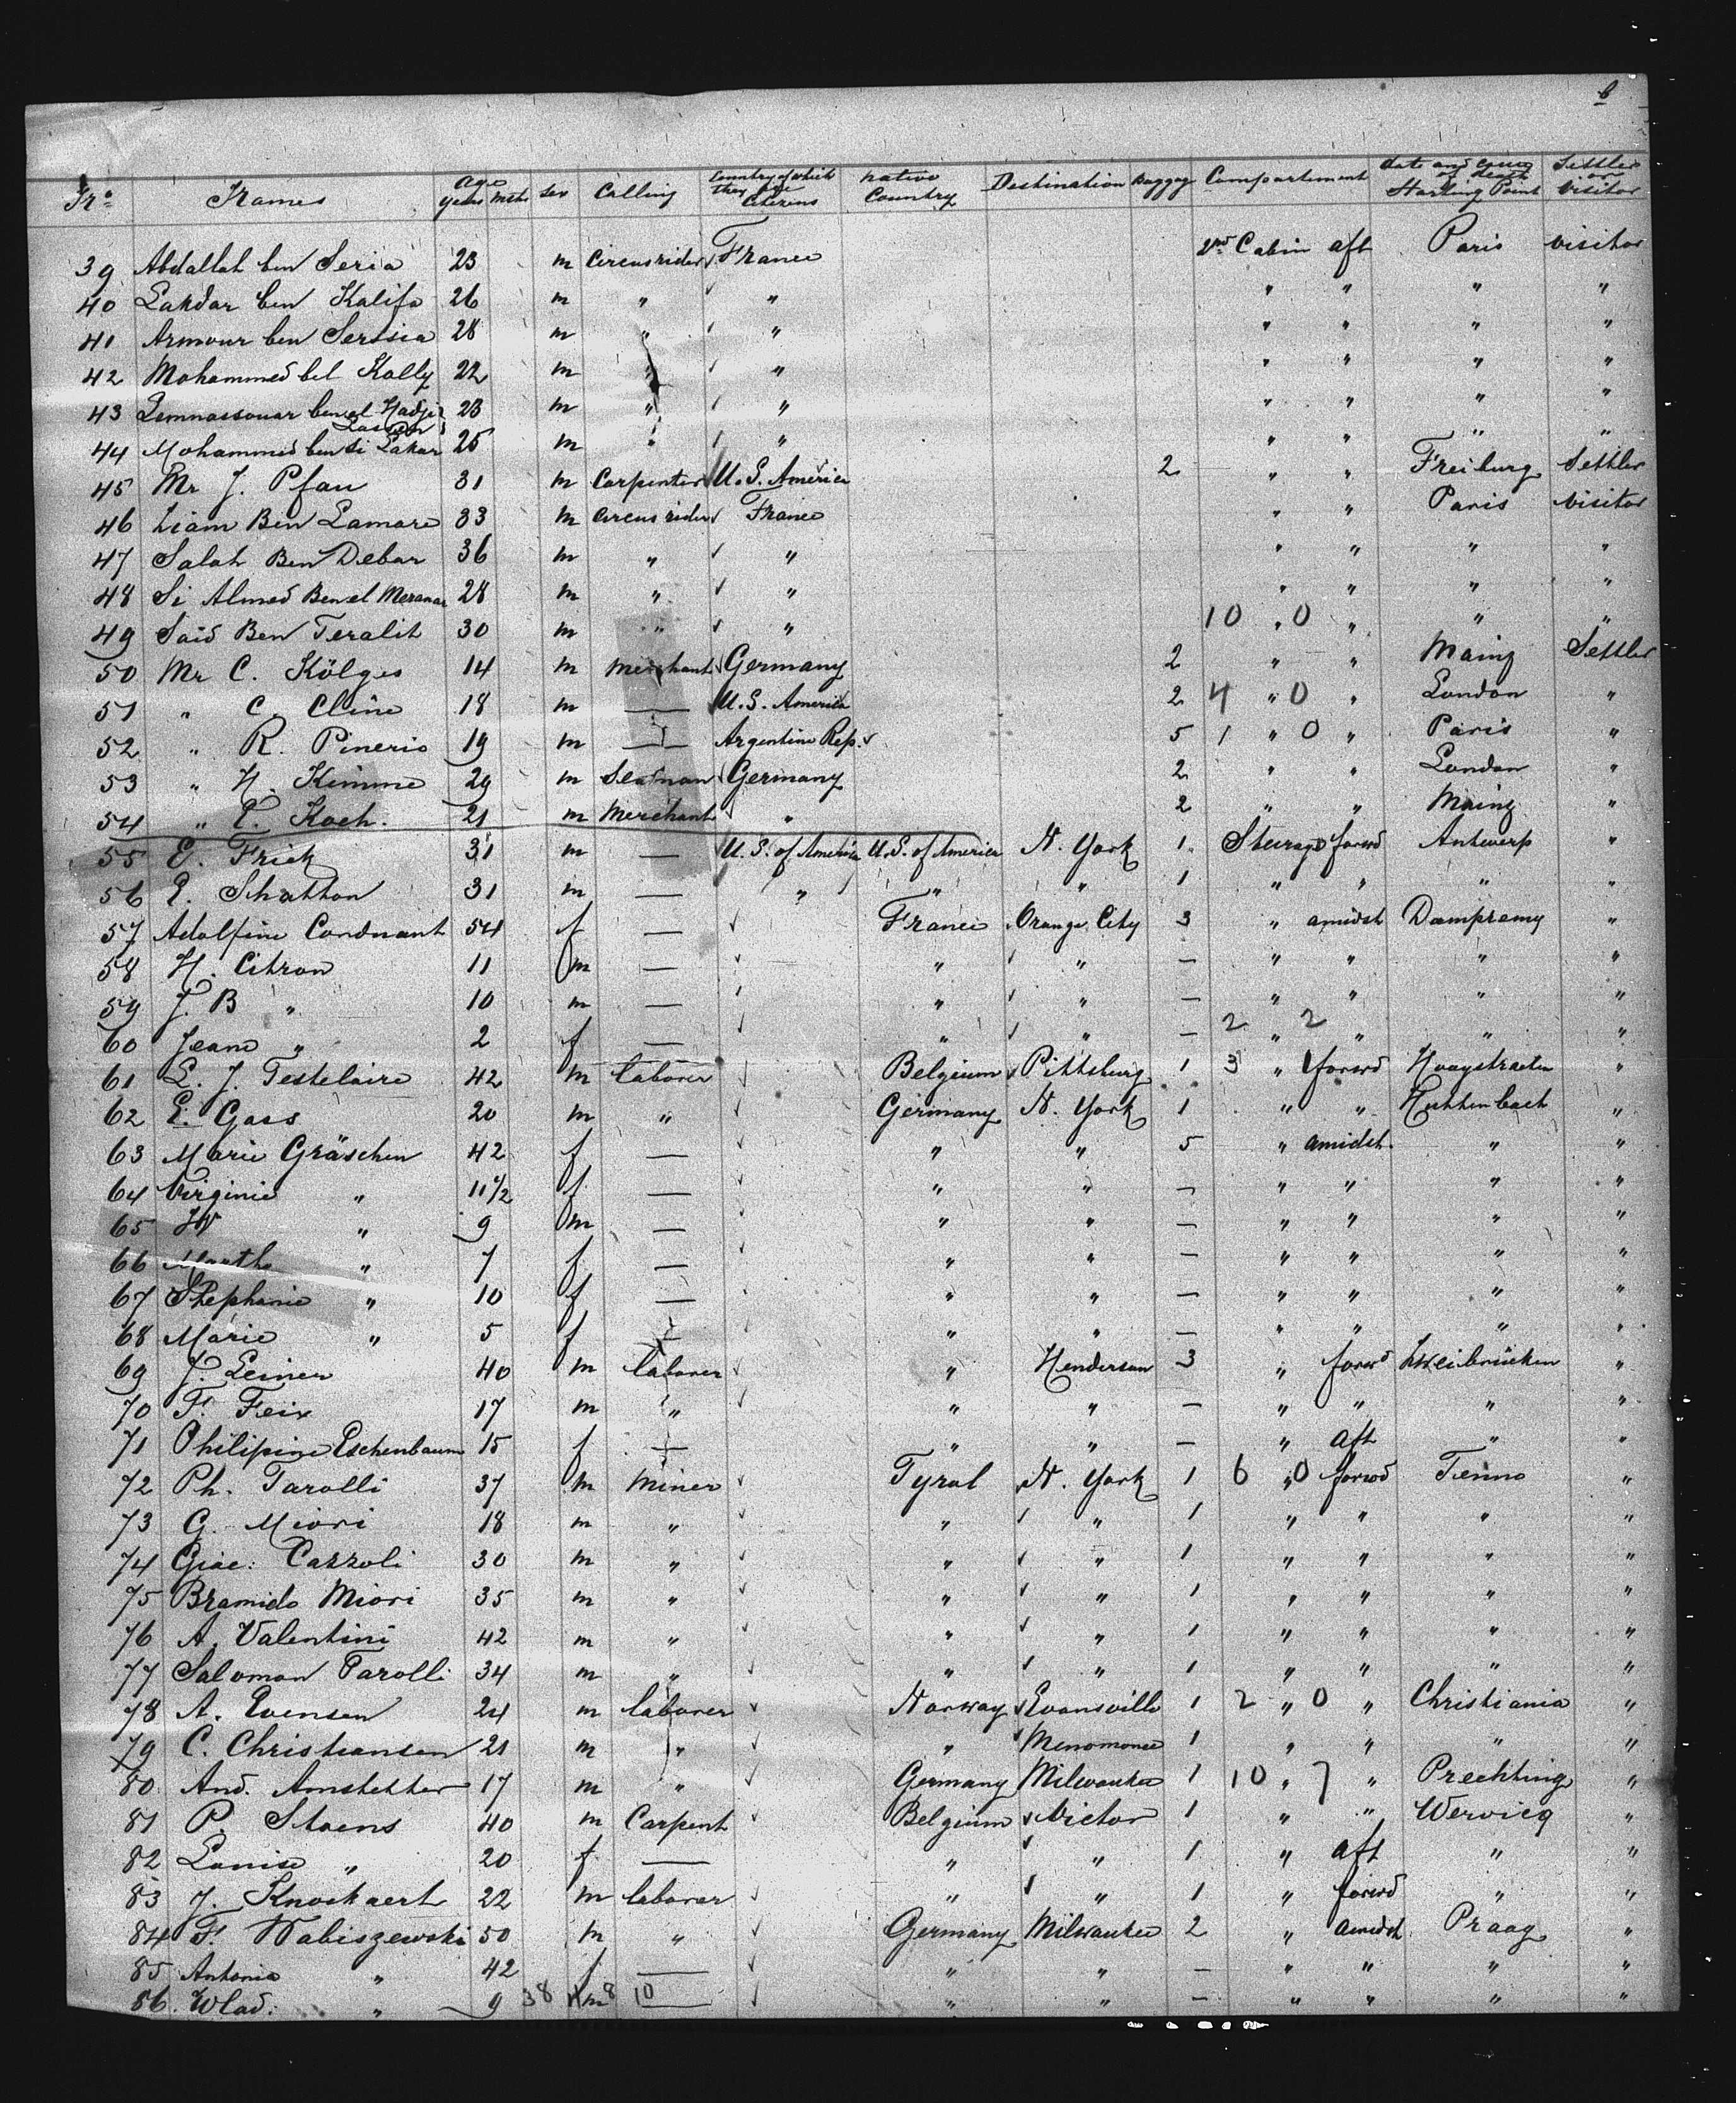 6
Nr. Names Age years mths Sex Calling Country of which they are Citizens native Country Destination Baggag Compartment date and cause of death Starting Point Settler or Visitor
39 Abdallah ben Seria 23 m Circusrider ✓ France 2nd Cabin aft Paris visitor
40 Lakdar ben Kalifa 26 m " ✓ " " " " "
41 Armour ben Serssia 28 m " ✓ " " " " "
42 Mohammed bel Kally 22 m " ✓ " " " " "
43 Lemnassouar ben el Hadje 23 m " ✓ " " " " "
44 Mohammed ben Si Lakar 25 m " ✓ " " " " "
45 Mr J. Pfau 31 m Carpenter U. S. America 2 " " Freiburg Settler
46 Liam Ben Lamare 33 m Circus rider ✓ France " " Paris visitor
47 Salah Ben Debar 36 m " ✓ " " " " "
48 Si Almed Ben el Meranar 28 m " ✓ " " " " "
49 Said Ben Teralit 30 m " ✓ " 10 " 0 " " "
50 Mr C. Kölges 14 m Merchant ✓ Germany 2 " " Mainz Settler
51 " C. Cline 18 m — U. S. America 2 4 " 0 " London "
52 " R. Pineris 19 m — Argentine Rep. ✓ 5 1 " 0 " Paris "
53 " H. Kimme 29 m Seaman ✓ Germany 2 " " London "
54 " E. Koch. 21 m Merchant ✓ " 2 " " Mainz "
55 E. Frick 31 m — U. S. of America U. S. of America N. York 1 Steerage forwd Antwerp "
56 E. Shatton 31 m — " " " 1 " " " "
57 Adolfine Cordnant 54 f — ✓ France Orange City 3 " amidsh Dampremy "
58 H. Citron 11 m — ✓ " ✓ " — " " " "
59 J. B " 10 m — ✓ " ✓ " — " " " "
60 Jeane " 2 f — ✓ " ✓ " — 2 " 2 " " "
61 L. J. Testelaire 42 m laborer ✓ Belgium ✓ Pittsburg 1 3 " 1 forwd Hoogstraeten "
62 E. Gass 20 m " ✓ Germany N. York 1 " " Huttenbach "
63 Marie Gräschen 42 f — ✓ " " 5 " amidsh. " "
64 Virginie " 11 1/2 f — ✓ " " — " " " "
65 W " 9 m — ✓ " " — " " " "
66 Marth " 7 f — ✓ " " — " " " "
67 Stephanie " 10 f — " " — " " " "
68 Marie " 5 f — ✓ " " — " " " "
69 J. Leiner 40 m laborer ✓ " Henderson 3 " forwd Zweibrücken "
70 F. Feix 17 m " ✓ " " — " " " "
71 Philipine Eschenbaum 15 f — " " — " aft " "
72 Ph. Tarolli 37 m Miner ✓ Tyrol N. York 1 6 " 0 forwd Tenno "
73 G. Miori 18 m " ✓ " ✓ " 1 " " " "
74 Giac: Cazzoli 30 m " ✓ " ✓ " 1 " " " "
75 Bramido Miori 35 m " ✓ " ✓ " 1 " " " "
76 A. Valentini 42 m " ✓ " ✓ " 1 " " " "
77 Saloman Tarolli 34 m " ✓ " ✓ " 1 " " " "
78 A. Evensen 24 m laborer ✓ Norway ✓ Evansville 1 2 " 0 " Christiania "
79 C. Christiansen 21 m " ✓ " ✓ Menomonee 1 " " " "
80 And. Amstetter 17 m " ✓ Germany Milwaukee 1 10 " 7 " Prechting "
81 P. Stoens 40 m Carpent ✓ Belgium ✓ Victor 1 " " Wervicq "
82 Louise " 20 f — " ✓ " 1 " aft " "
83 J. Knockaert 22 m laborer ✓ " ✓ " 1 " forwd " "
84 F. Wabiszewski 50 m " ✓ Germany Milwaukee 2 " amidsh Praag "
85 Antonia " 42 f — ✓ " " — " " " "
86. Wlad: " 9 38 m 8 10 — ✓ " " — " " " "